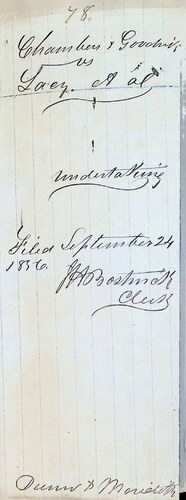 78.
Chambers & Goodwin
vs
Lacy. et al
undertaking
Filed September 24
1856.
Bostwick
Clerk
& Meredith